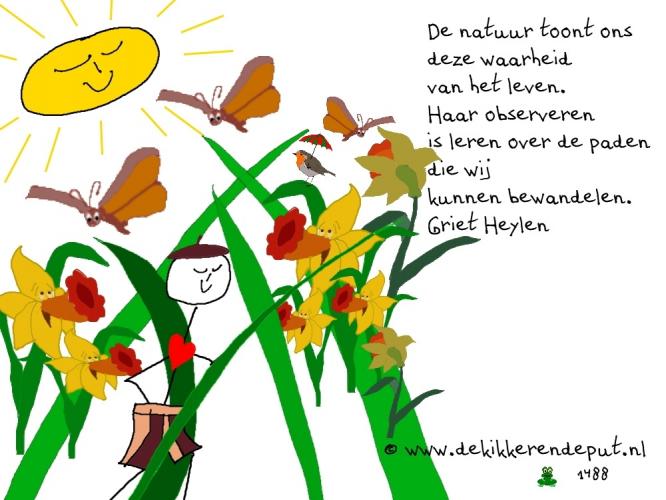 De natuur toont ons
deze waarheid
van het leven.
Haar observeren
is leren over de paden
die wij
kunnen bewandelen.
Griet Heylen
© www.dekikkerendeput.nl
1488